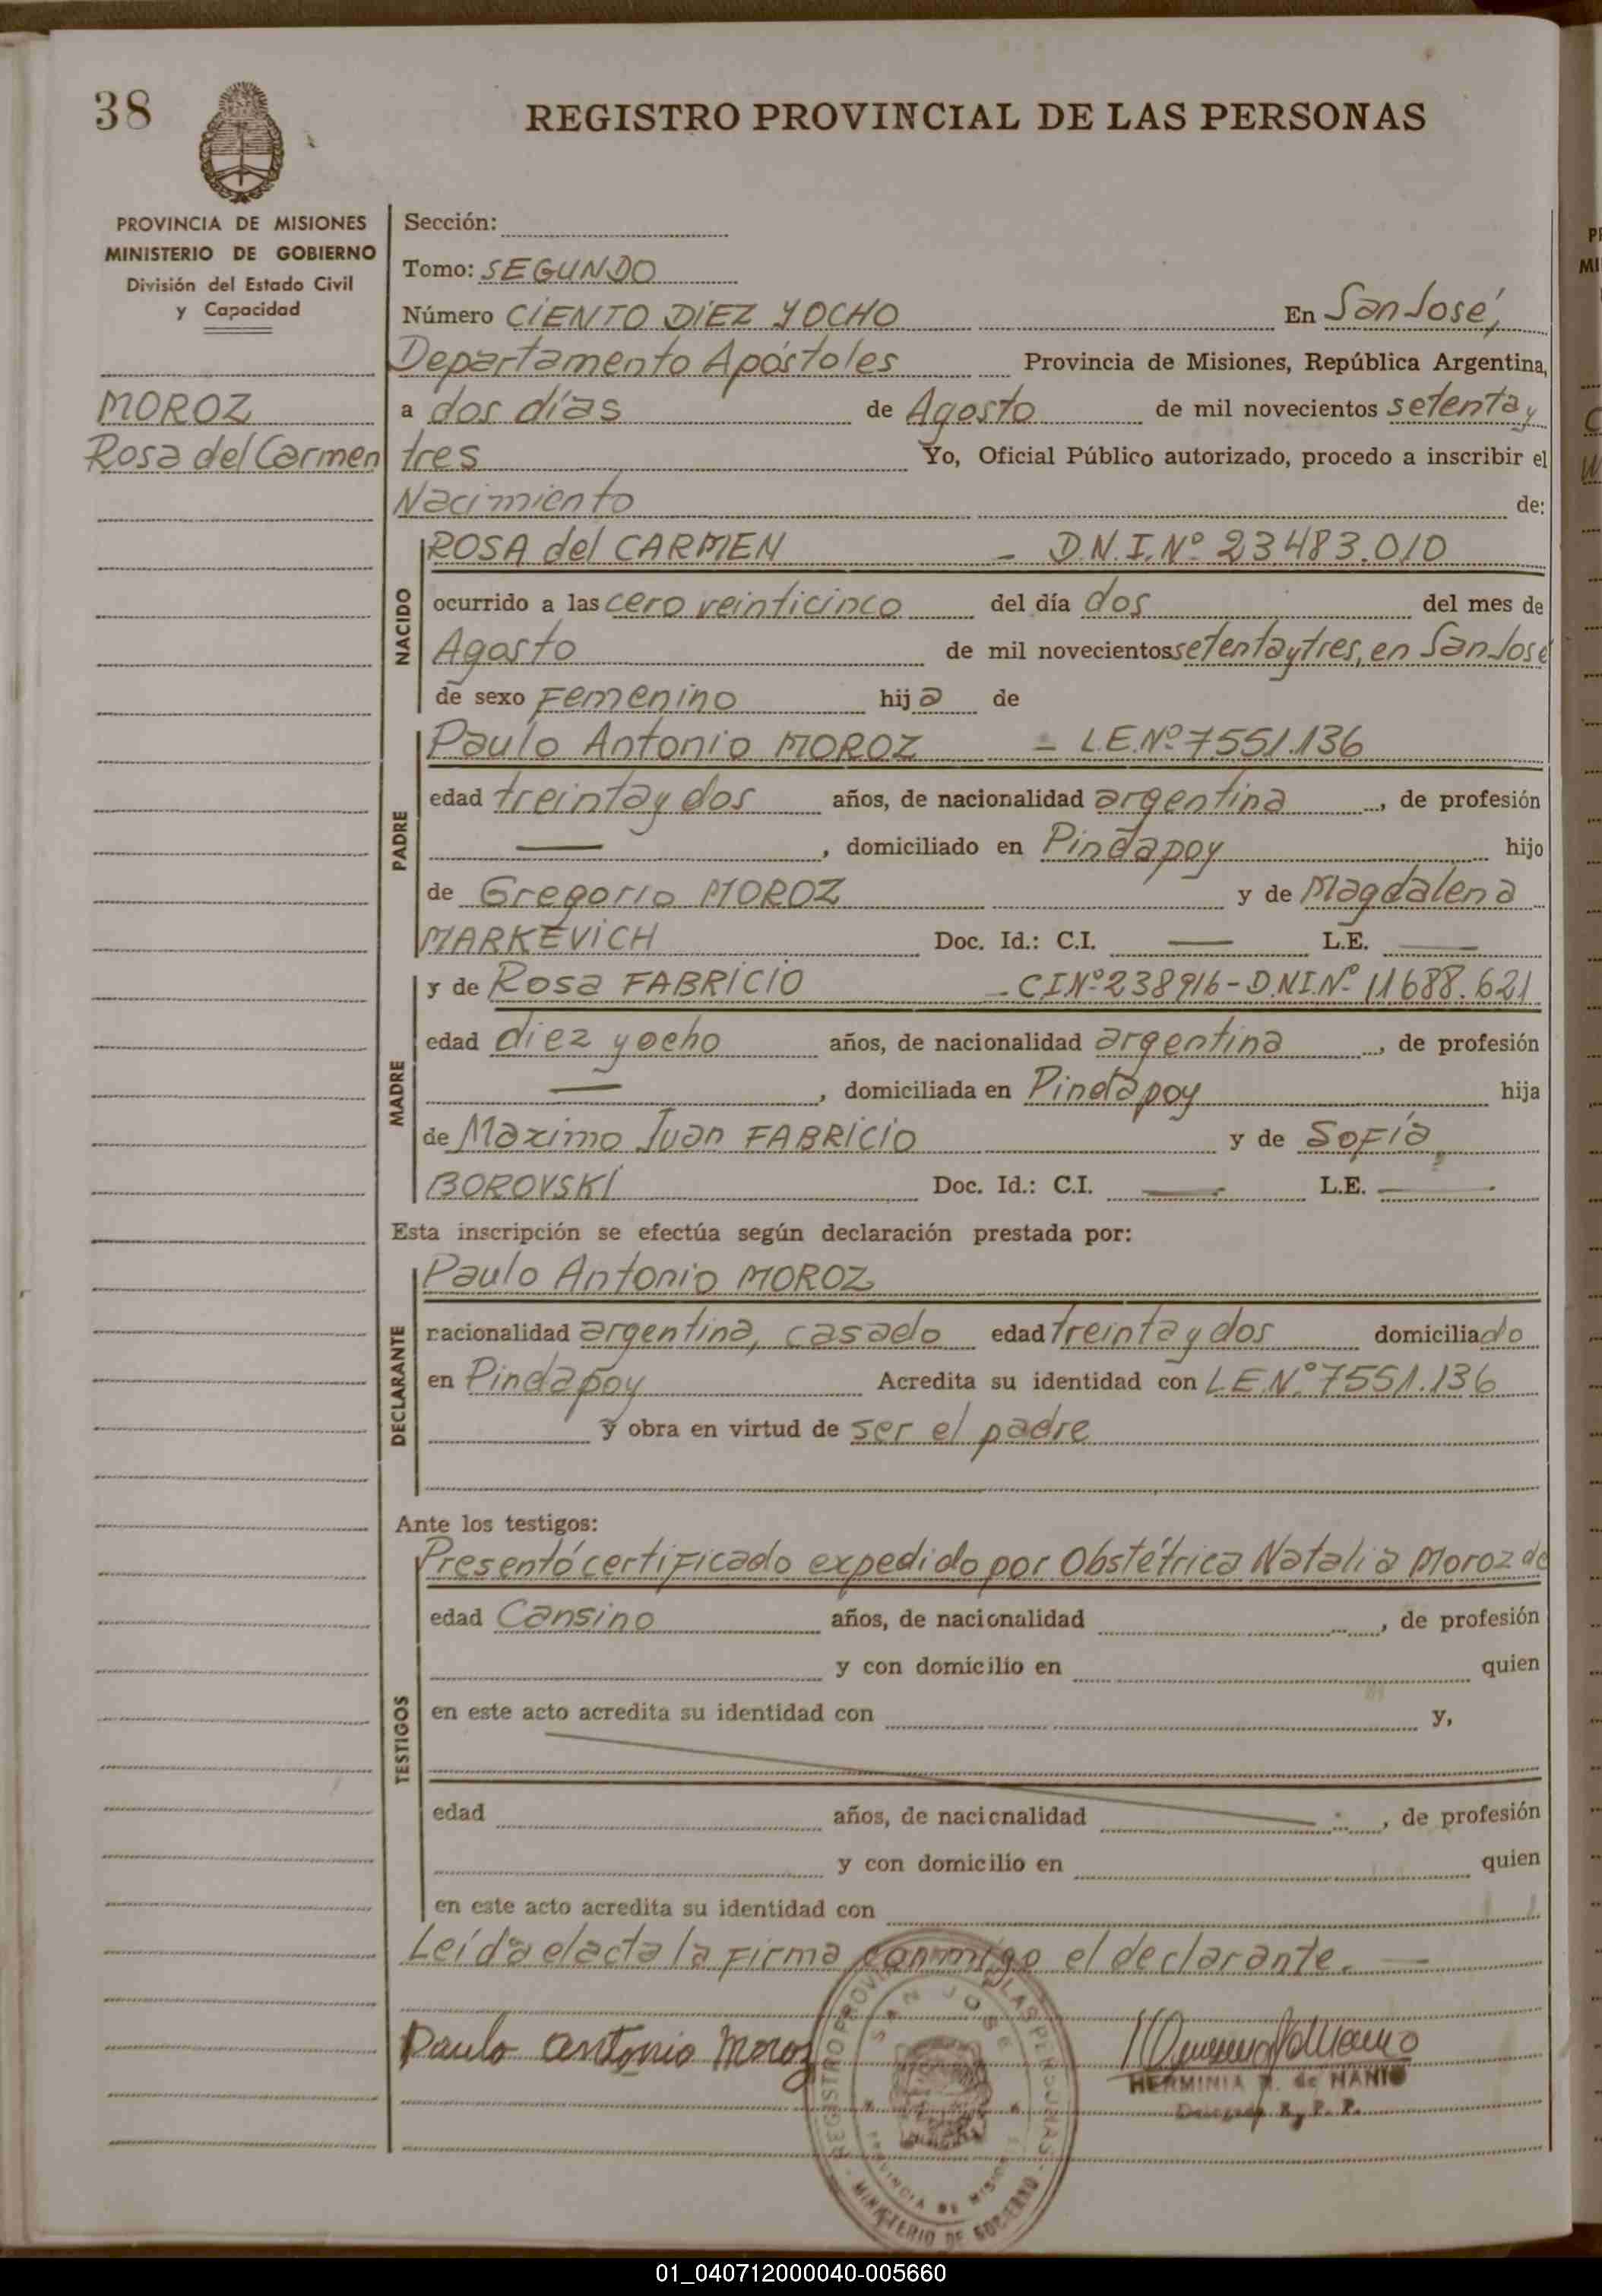 38
REGISTRO PROVINCIAL DE LAS PERSONAS
PROVINCIA DE MISIONES
MINISTERIO DE GOBIERNO
División del Estado Civil
y Capacidad
MOROZ
Rosa del Carmen
Sección:
Tomo: SEGUNDO
Número CIENTO DIEZ Y OCHO En San José,
Departamento Apóstoles Provincia de Misiones, República Argentina,
a dos días de Agosto de mil novecientos setenta y
tres Yo, Oficial Público autorizado, procedo a inscribir el
Nacimiento de:
NACIDO
ROSA del CARMEN - D.N.I. Nº 23483.010
ocurrido a las cero veinticinco del día dos del mes de
Agosto de mil novecientos setenta y tres, en San José
de sexo Femenino hija de
PADRE
Paulo Antonio MOROZ - L.E. Nº 7551.136
edad treinta y dos años, de nacionalidad argentina, de profesión
—, domiciliado en Pindapoy hijo
de Gregorio MOROZ y de Magdalena
MARKEVICH Doc. Id.: C.I. — L.E. —
MADRE
y de Rosa FABRICIO - C I. Nº 238916 - D.N.I. Nº 11688.621
edad diez y ocho años, de nacionalidad argentina, de profesión
—, domiciliada en Pindapoy hija
de Maximo Juan FABRICIO y de Sofía
BOROVSKI Doc. Id.: C.I. — L.E. —
Esta inscripción se efectúa según declaración prestada por:
DECLARANTE
Paulo Antonio MOROZ
nacionalidad argentina, casado edad treinta y dos domiciliado
en Pindapoy Acredita su identidad con L.E. Nº 7551.136
y obra en virtud de ser el padre
Ante los testigos:
TESTIGOS
Presentó certificado expedido por Obstétrica Natalia Moroz de
edad Cansino años, de nacionalidad , de profesión
y con domicilio en quien
en este acto acredita su identidad con y,
edad años, de nacionalidad , de profesión
y con domicilio en quien
en este acto acredita su identidad con
Leída el acta la firma conmigo el declarante. —
Paulo Antonio Moroz
HERMINIA de NANIO
R. P. P.
REGISTRO PROVINCIAL DE LAS PERSONAS
SAN JOSE
PROVINCIA DE MISIONES
MINISTERIO DE GOBIERNO
01_040712000040-005660